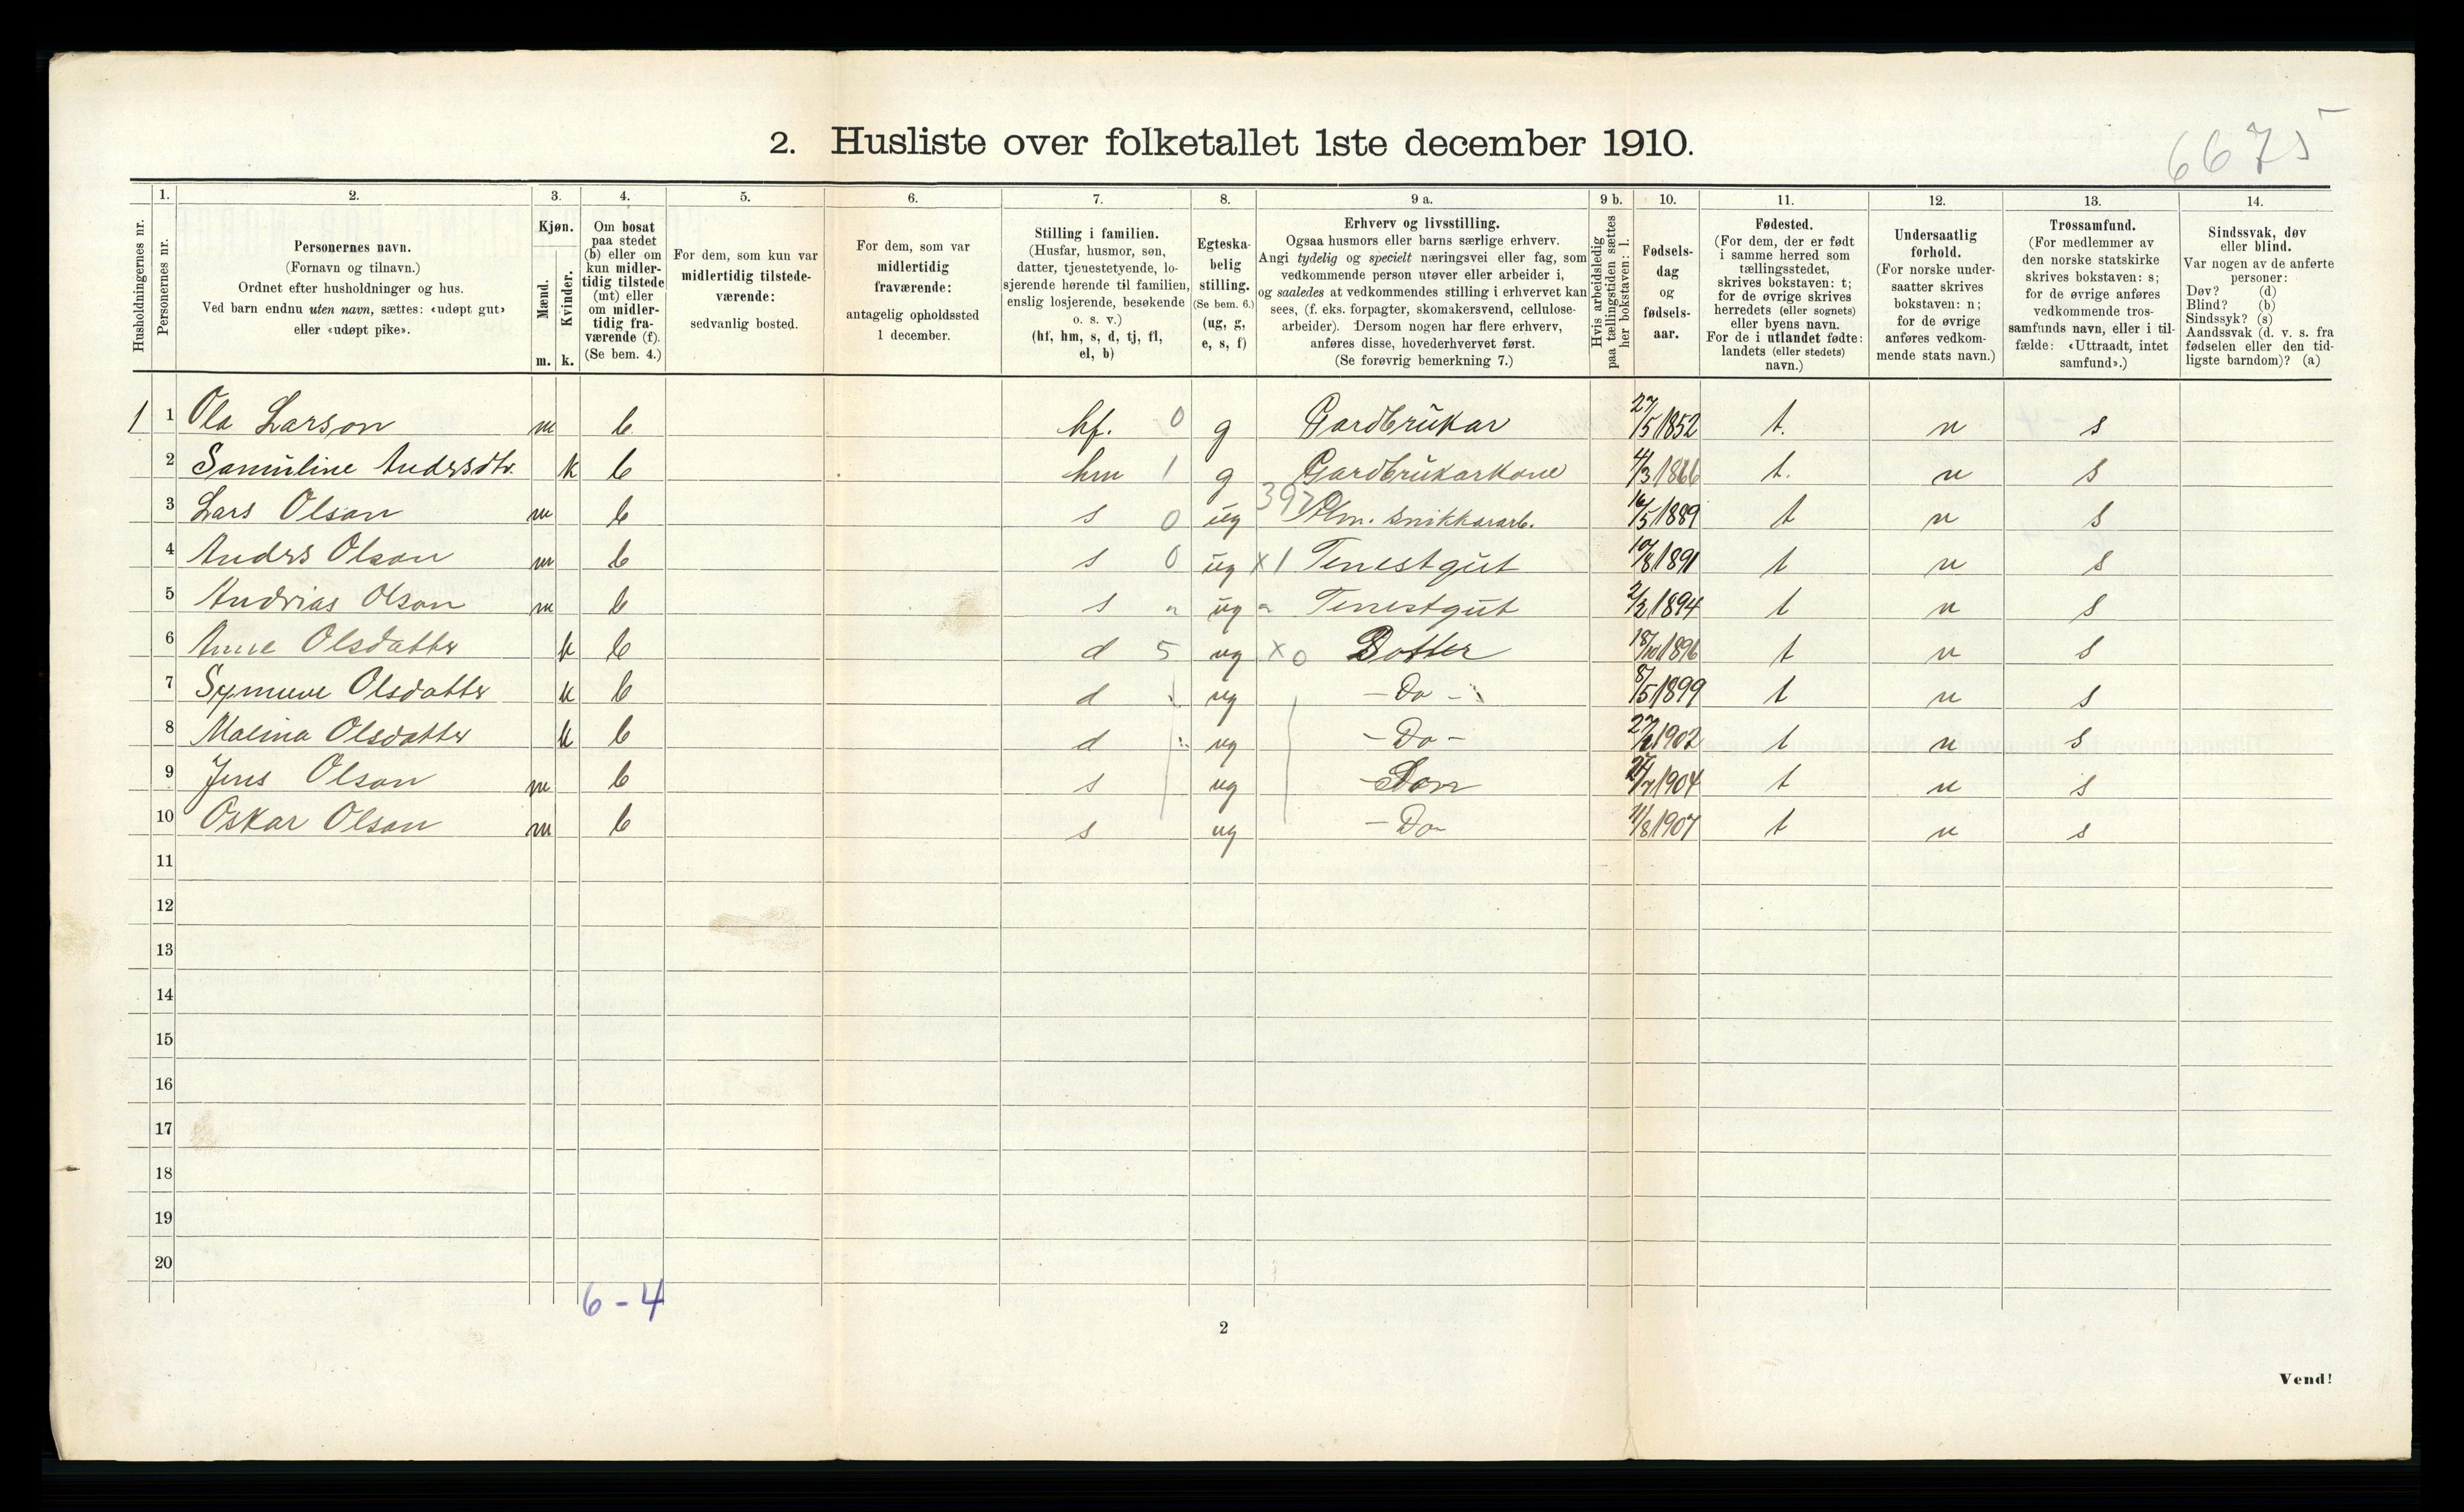 2. Husliste over folketallet 1ste december 1910.
6675
Husholdningernes nr.
1. Personernes nr.
2. Personernes navn.
(Fornavn og tilnavn.)
Ordnet efter husholdninger og hus.
Ved barn endnu uten navn, sættes: «udøpt gut»
eller «udøpt pike».
3. Kjøn.
Mænd. Kvinder.
m. k.
4. Om bosat
paa stedet
(b) eller om
kun midler-
tidig tilstede
(mt) eller
om midler-
tidig fra-
værende (f).
(Se bem. 4.)
5. For dem, som kun var
midlertidig tilstede-
værende:
sedvanlig bosted.
6. For dem, som var
midlertidig
fraværende:
antagelig opholdssted
1 december.
7. Stilling i familien.
(Husfar, husmor, søn,
datter, tjenestetyende, lo-
sjerende hørende til familien,
enslig losjerende, besøkende
o. s. v.)
(hf, hm, s, d, tj, fl,
el, b)
8. Egteska-
belig
stilling.
(Se bem. 6.)
(ug, g,
e, s, f)
9 a. Erhverv og livsstilling.
Ogsaa husmors eller barns særlige erhverv.
Angi tydelig og specielt næringsvei eller fag, som
vedkommende person utøver eller arbeider i,
og saaledes at vedkommendes stilling i erhvervet kan
sees, (f. eks. forpagter, skomakersvend, cellulose-
arbeider). Dersom nogen har flere erhverv,
anføres disse, hovederhvervet først.
(Se forøvrig bemerkning 7.)
9 b. Hvis arbeidsledig
paa tællingstiden sættes
her bokstaven: l.
10. Fødsels-
dag
og
fødsels-
aar.
11. Fødested.
(For dem, der er født
i samme herred som
tællingsstedet,
skrives bokstaven: t;
for de øvrige skrives
herredets (eller sognets)
eller byens navn.
For de i utlandet fødte:
landets (eller stedets)
navn.)
12. Undersaatlig
forhold.
(For norske under-
saatter skrives
bokstaven: n;
for de øvrige
anføres vedkom-
mende stats navn.)
13. Trossamfund.
(For medlemmer av
den norske statskirke
skrives bokstaven: s;
for de øvrige anføres
vedkommende tros-
samfunds navn, eller i til-
fælde: «Uttraadt, intet
samfund».)
14. Sindssvak, døv
eller blind.
Var nogen av de anførte
personer:
Døv? (d)
Blind? (b)
Sindssyk? (s)
Aandssvak (d. v. s. fra
fødselen eller den tid-
ligste barndom)? (a)
1 1 Ola Larson m b hf. 0 g Gardbrukar 27/5 1852 t. n s
2 Samuline Andrsdtr. k b hm 1 g Gardbrukarkone 4/3 1866 t. n s
3 Lars Olson m b s 0 ug Alm. snikkararb. 16/5 1889 t n s
4 Andrs Olson m b s 0 ug x1 Tenestgut 10/8 1891 t n s
5 Andrias Olson m b s " ug " Tenestgut 2/2 1894 t n s
6 Anne Olsdatter k b d 5 ug x0 Dotter 18/10 1896 t n s
7 Synneve Olsdatter k b d ug - Do - 8/5 1899 t n s
8 Malina Olsdatter k b d ug - Do - 1902 t n s
9 Jens Olson m b s ug Son 1904 t n s
10 Oskar Olson m b s ug - Do - 11/8 1907 t n s
11
12
13
14
15
16
17
18
19
20
6 - 4
2
Vend!